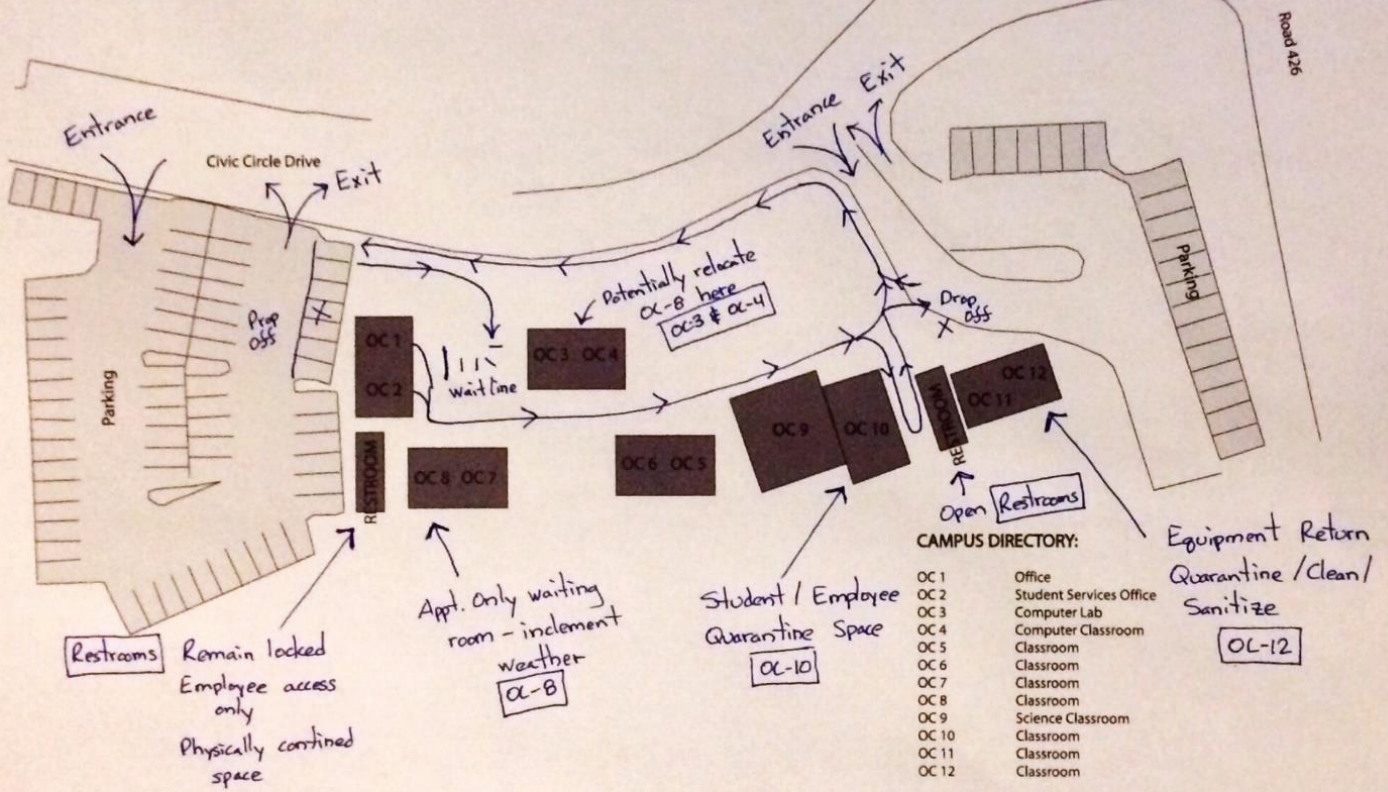 Road 426
Entrance
Exit
Entrance
Civic Circle Drive
Exit
Parking
Potentially relocate
OC-8 here
OC-3 & OC-4
Drop
off
X
Drop
off
X
OC 1
OC 2
OC 3 OC 4
Waitline
Parking
OC 12
OC 11
RESTROOM
OC 9
OC 10
OC 6 OC 5
OC 8 OC 7
RESTROOM
Open Restrooms
Restrooms
Remain locked
Employee access
only
Physically confined
space
Appt. Only waiting
room - inclement
weather
OC-8
Student / Employee
Quarantine Space
OC-10
Equipment Return
Quarantine / Clean /
Sanitize
OC-12
CAMPUS DIRECTORY:
OC 1 Office
OC 2 Student Services Office
OC 3 Computer Lab
OC 4 Computer Classroom
OC 5 Classroom
OC 6 Classroom
OC 7 Classroom
OC 8 Classroom
OC 9 Science Classroom
OC 10 Classroom
OC 11 Classroom
OC 12 Classroom